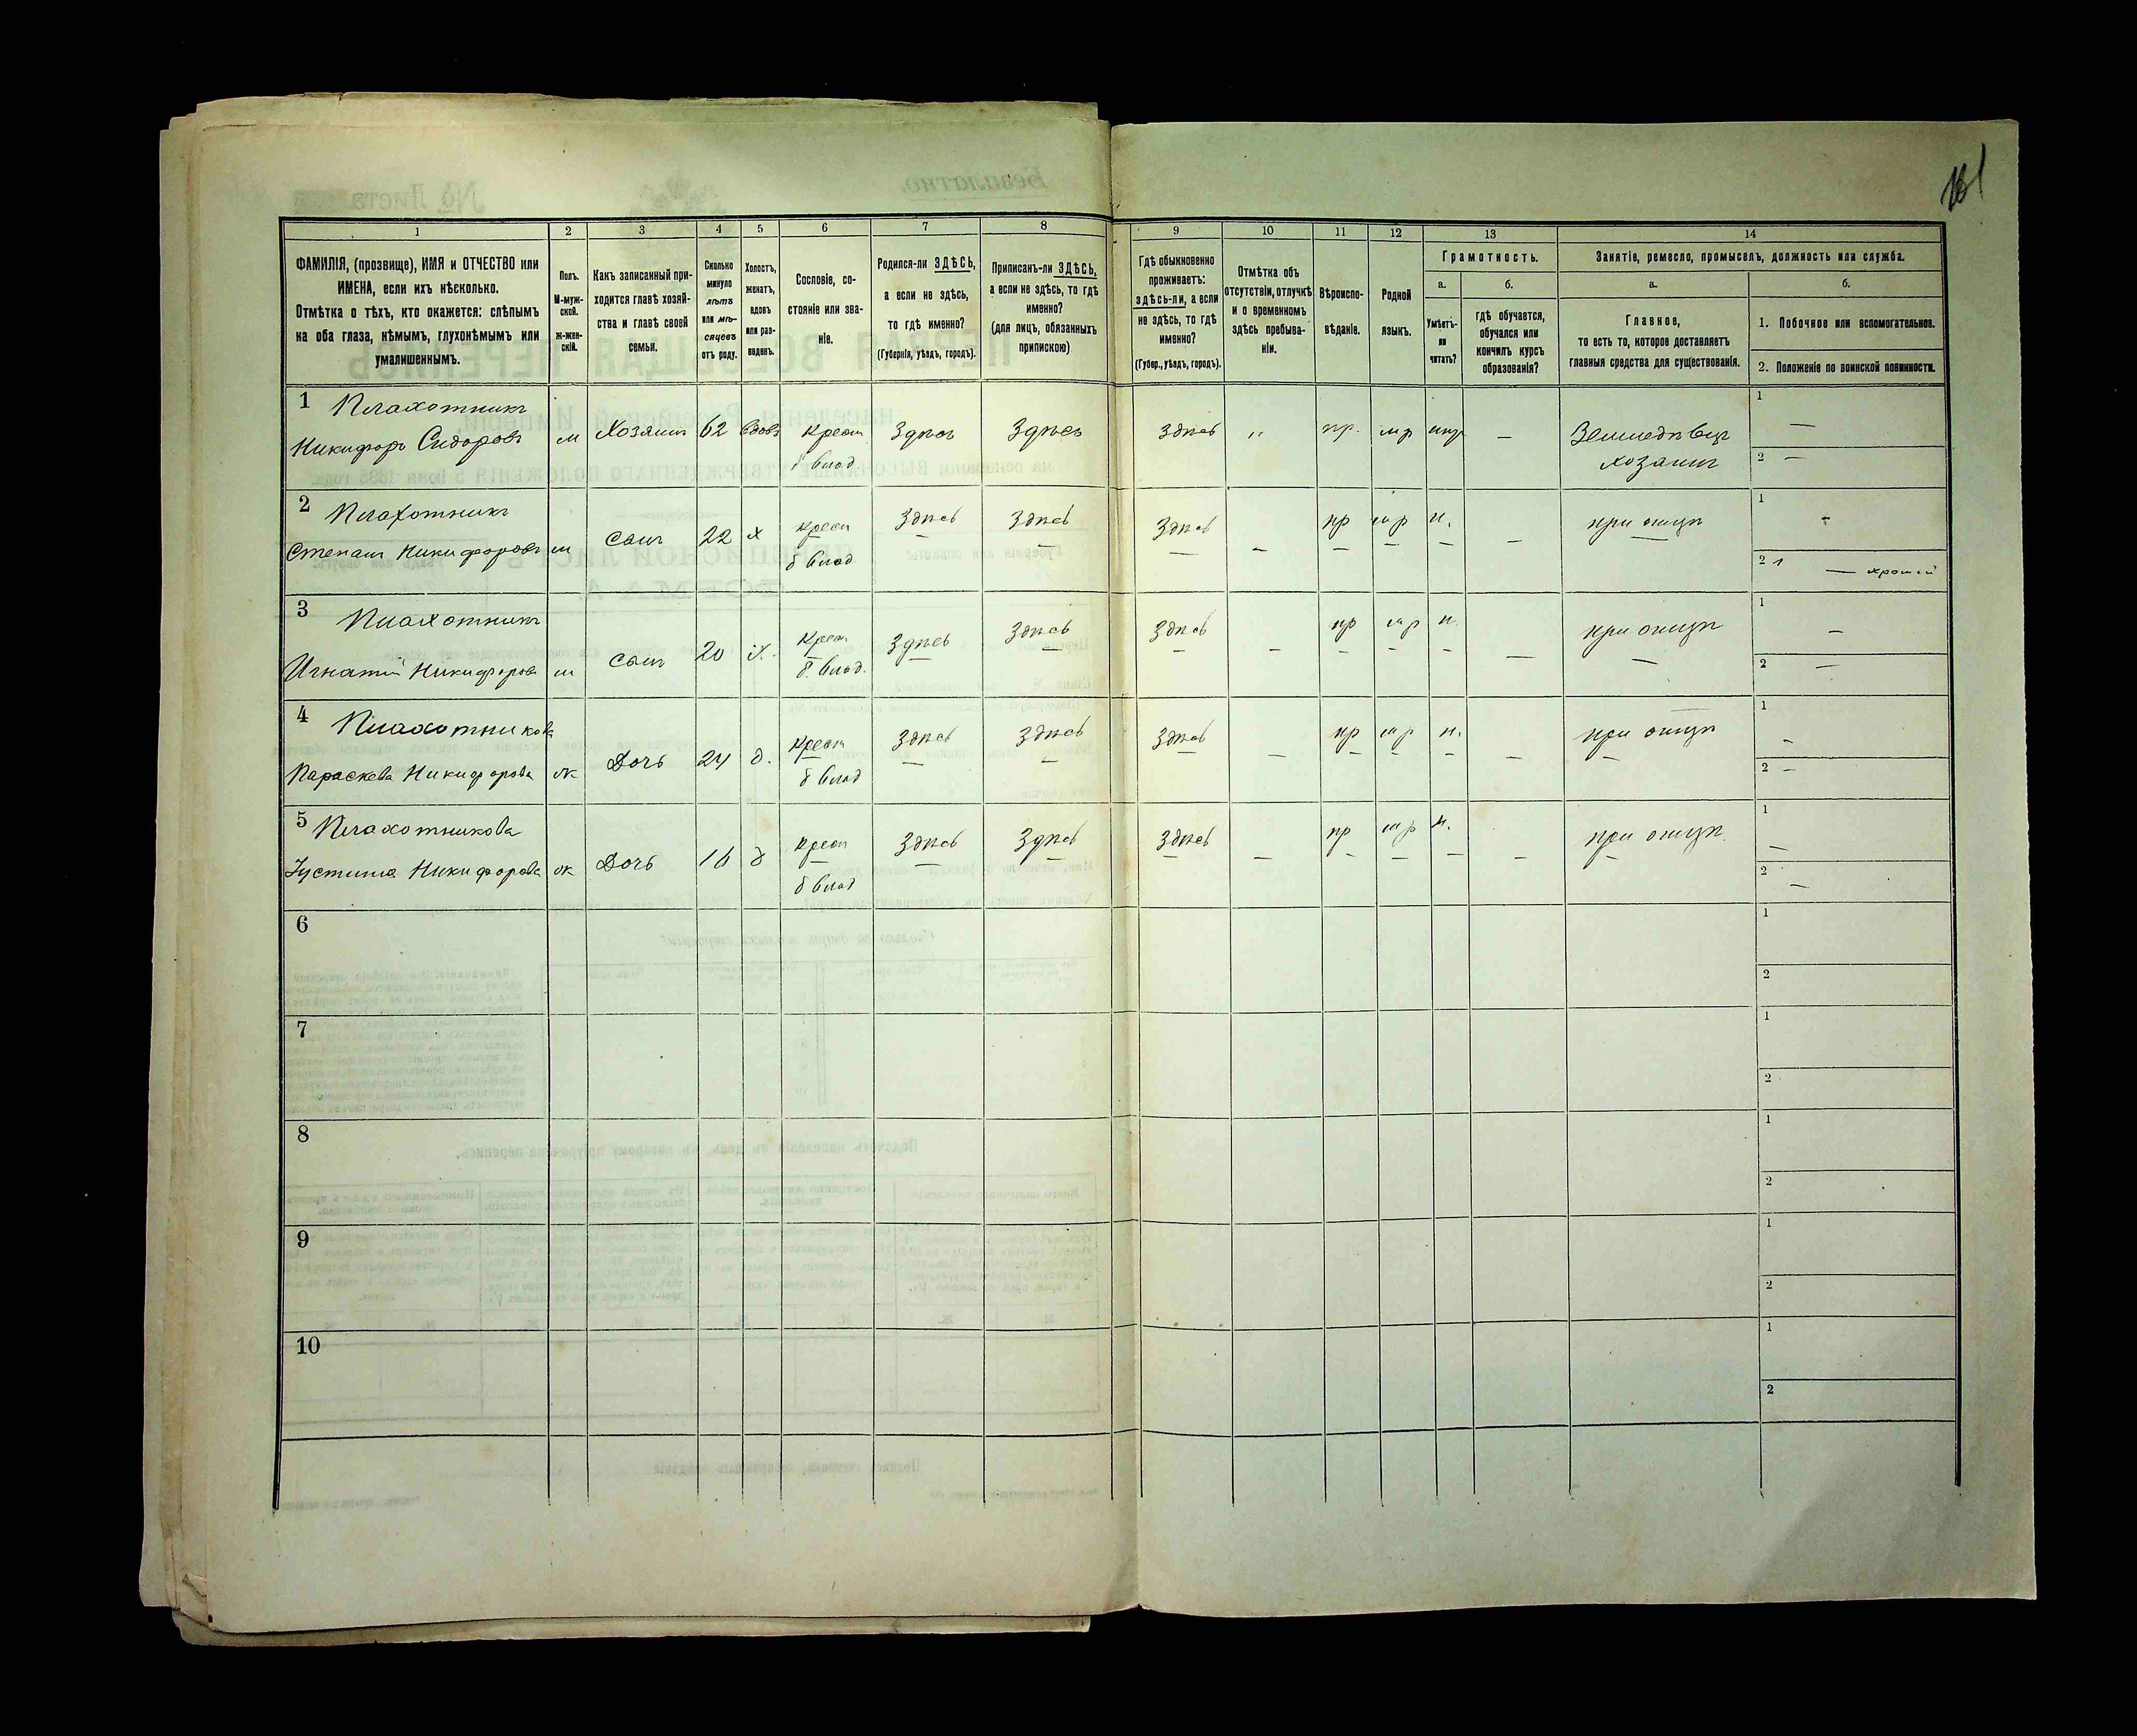 1
2
3
4
5
6
7
8
9
10
11
12
13
14
ФАМИЛІЯ, (прозвище), ИМЯ и ОТЧЕСТВО или
ИМЕНА, если ихъ нѣсколько.
Отмѣтка о тѣхъ, кто окажется: слѣпымъ
на оба глаза, нѣмымъ, глухонѣмымъ или
умалишеннымъ.
Полъ.
М-муж-
ской.
Ж-жен-
скій.
Какъ записанный при-
ходится главѣ хозяй-
ства и главѣ своей
семьи.
Сколько
минуло
лѣтъ
или мѣ-
сяцевъ
отъ роду.
Холостъ,
женатъ,
вдовъ
или раз-
веденъ.
Сословіе, со-
стояніе или зва-
ніе.
Родился-ли ЗДѢСЬ,
а если не здѣсь,
то гдѣ именно?
(Губернія, уѣздъ, городъ).
Приписанъ-ли ЗДѢСЬ,
а если не здѣсь, то гдѣ
именно?
(для лицъ, обязанныхъ
припискою)
Гдѣ обыкновенно
проживаетъ:
здѣсь-ли, а если
не здѣсь, то гдѣ
именно?
(Губер., уѣздъ, городъ).
Отмѣтка объ
отсутствіи, отлучкѣ
и о временномъ
здѣсь пребыва-
ніи.
Вѣроиспо-
вѣданіе.
Родной
языкъ.
Грамотность.
а.
Умѣетъ-
ли
читать?
б.
гдѣ обучается,
обучался или
кончилъ курсъ
образованія?
Занятіе, ремесло, промыселъ, должность или служба.
а.
Главное,
то есть то, которое доставляетъ
главныя средства для существованія.
б.
1. Побочное или вспомогательное.
2. Положеніе по воинской повинности.
1 Плахотникъ
Никифоръ Сидоровъ
м
Хозяинъ
62
Вдовъ
Крест
б влад.
Здѣсь
Здѣсь
Здѣсь
"
пр.
мр
—
Земледѣлецъ
хозяинъ
1 —
2 —
2 Плахотникъ
Степанъ Никифоровъ
м
Сынъ
22
х
крест
б влад
Здѣсь
Здѣсь
Здѣсь
—
пр
мр
н.
—
при отцѣ
1 -
2 1 —
3 Плахотникъ
Игнатій Никифоровъ
м
Сынъ
20
х.
Крест
б. влад.
Здѣсь
Здѣсь
Здѣсь
—
пр
мр
н.
—
при отцѣ
1 —
2 —
4 Плахотникова
Параскева Никифорова
ж
Дочь
24
д.
Крест
б влад
Здѣсь
Здѣсь
Здѣсь
—
пр
мр
н.
—
при отцѣ
1 -
2 —
5 Плахотникова
Устинья Никифорова
ж
Дочь
16
д
крест
б влад
Здѣсь
Здѣсь
Здѣсь
—
пр
мр
н.
—
при отцѣ
1 —
2 —
6
1
2
7
1
2
8
1
2
9
1
2
10
1
2